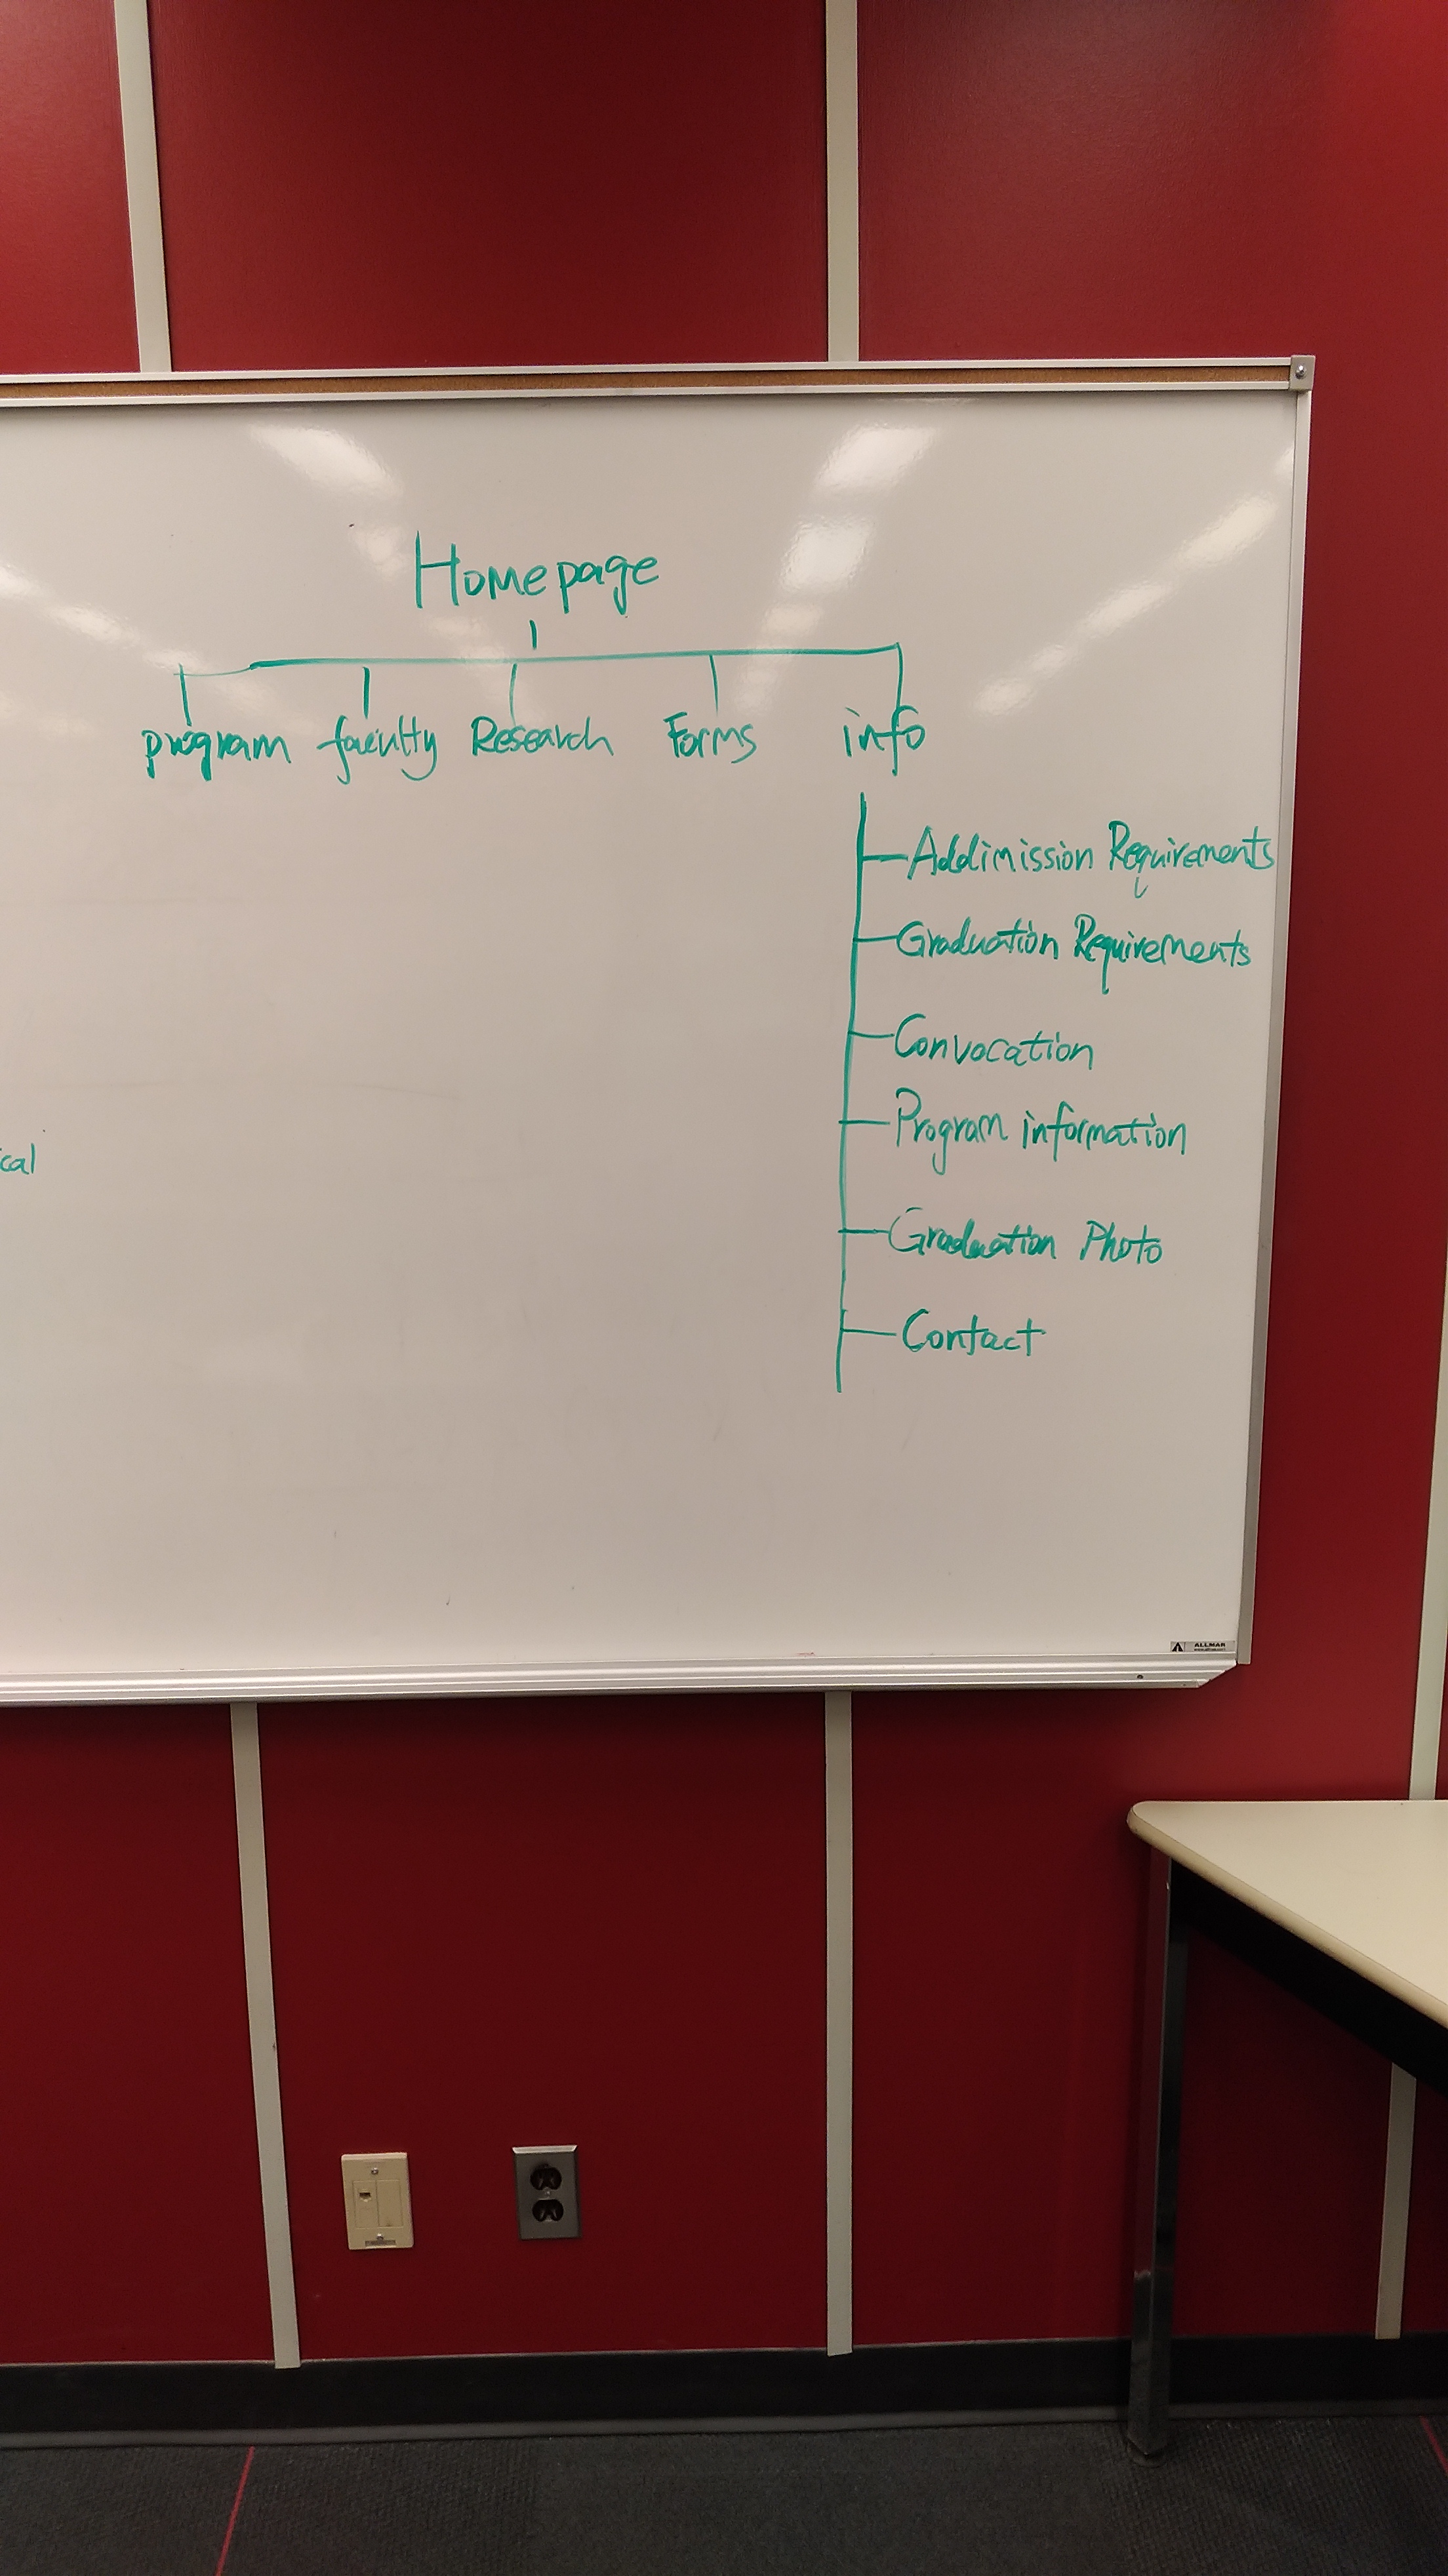 Homepage
program faculty Research Forms info
Addimission Requirements
Graduation Requirements
Convocation
Program information
cal
Graduation Photo
Contact
ALLMAR